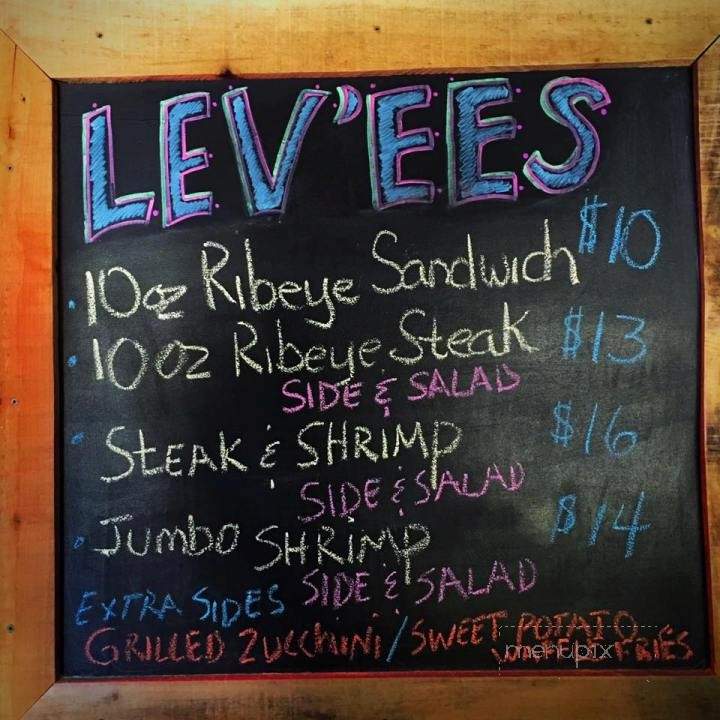 LEV'EES
10oz Ribeye Sandwich $10
10oz Ribeye Steak $13
SIDE & SALAD
STEAK & SHRIMP $16
SIDE & SALAD
Jumbo SHRIMP $14
SIDE & SALAD
EXTRA SIDES
GRILLED ZUCCHINI / SWEET POTATO
FRIES
menupix